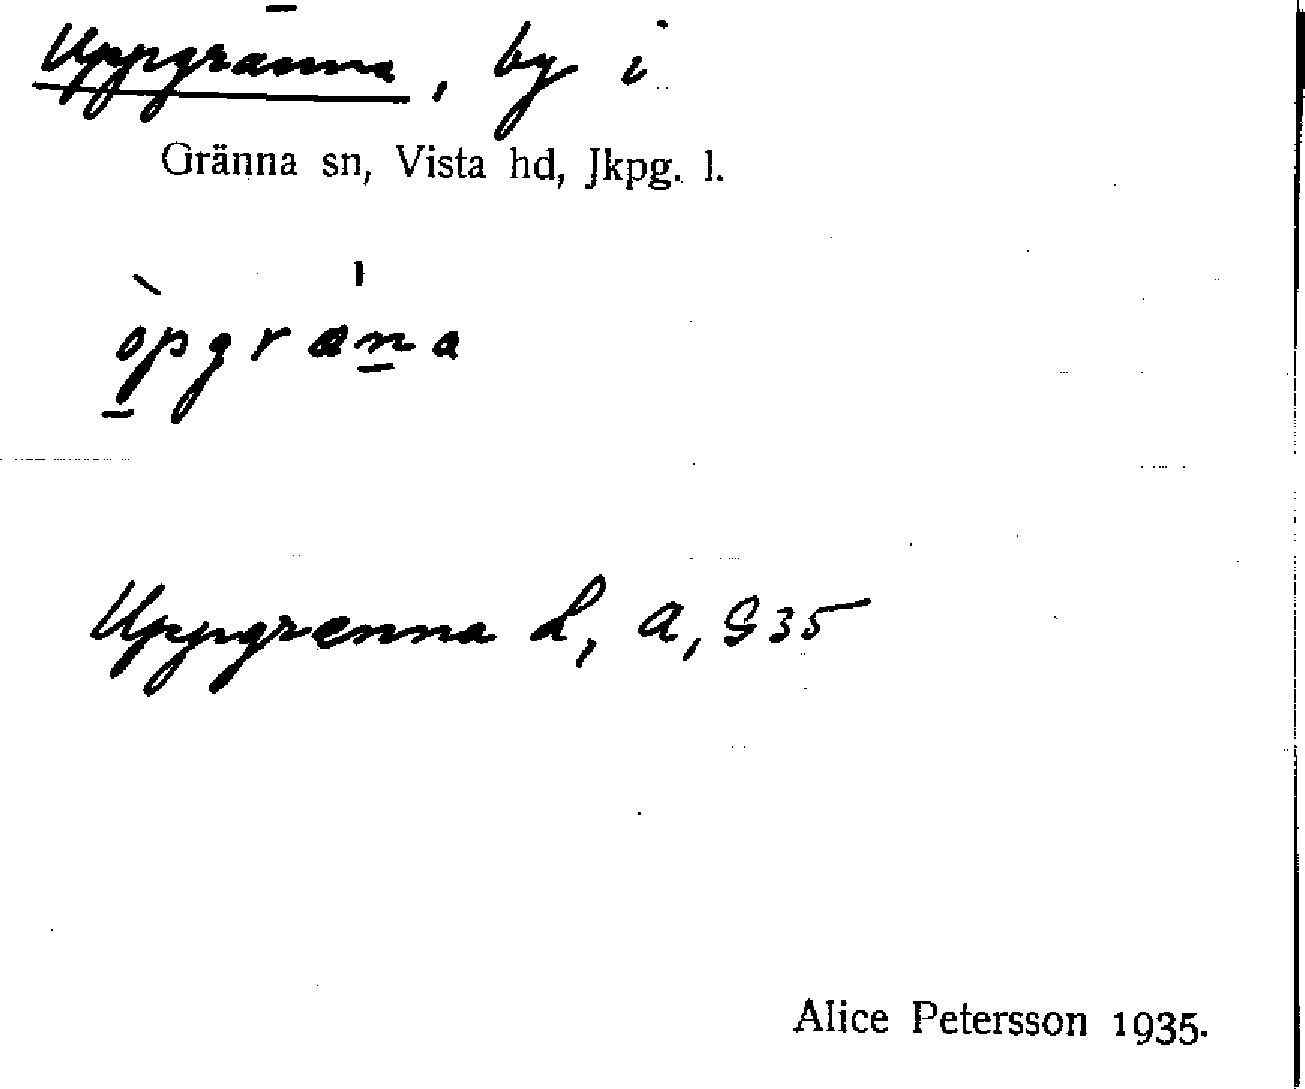 Uppgränna, by i
Gränna sn, Vista hd, Jkpg. l.
òpgräna
Uppgrenna L, a, G35
Alice Petersson 1935.